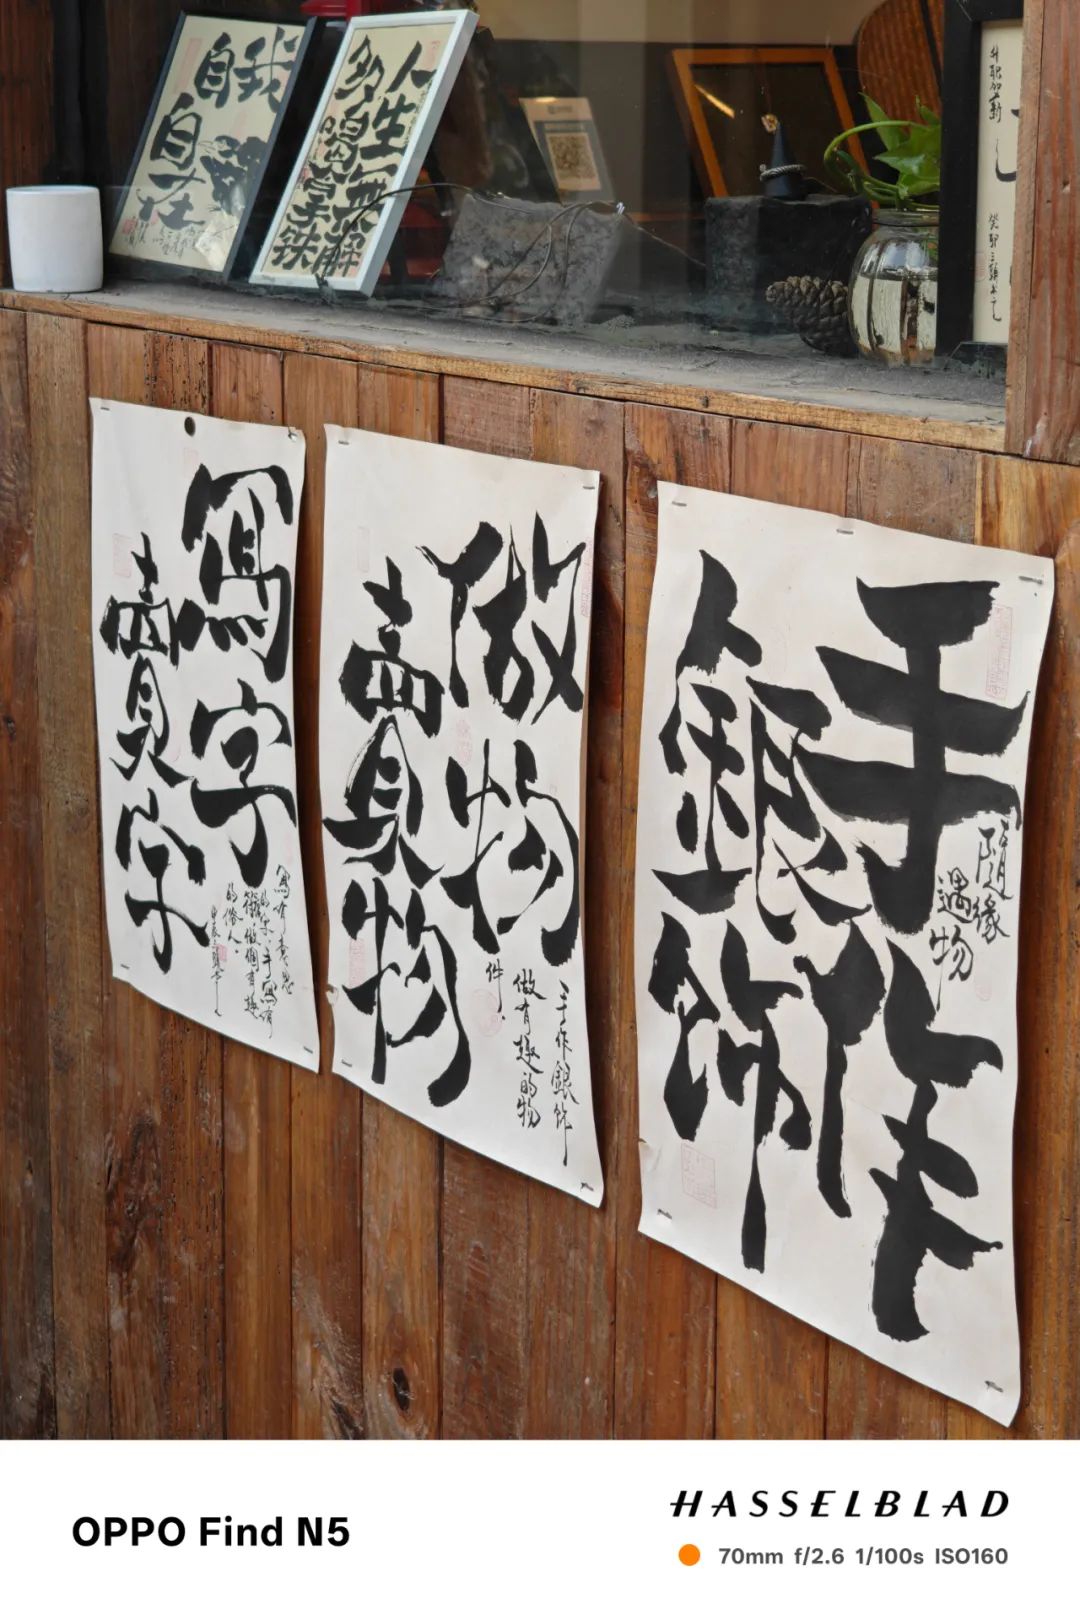 我
自自在
人生無解
多喝
升职加薪
癸卯
寫字
賣字
寫有意思
的字.手寫有
做個有趣
的俗人.
做物
賣物
手作銀飾
做有趣的物
件.
手作
銀飾
隨緣
遇物
OPPO Find N5
HASSELBLAD
70mm f/2.6 1/100s ISO160